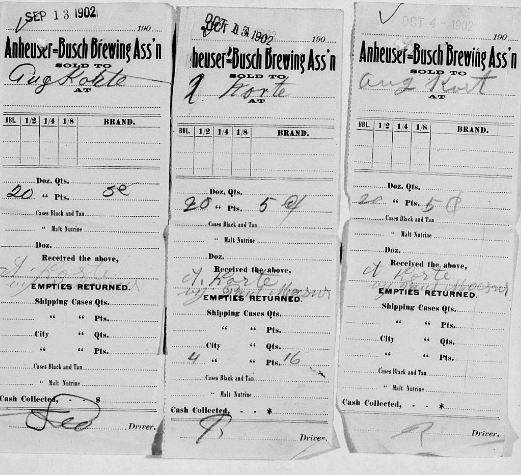 SEP 13 1902
190
Anheuser-Busch Brewing Ass'n
SOLD TO
Aug Korte
AT
BBL. 1/2 1/4 1/8 BRAND.
Doz. Qts.
20 " Pts. 5c
Cases Black and Tan
" Malt Nutrine
Doz.
Received the above,
A Korte
EMPTIES RETURNED.
Shipping Cases Qts.
" " Pts.
City " Qts.
" " Pts.
Cases Black and Tan
" Malt Nutrine
Cash Collected, - - $
Geo
Driver.
OCT 13 1902
190
Anheuser-Busch Brewing Ass'n
SOLD TO
A. Korte
AT
BBL. 1/2 1/4 1/8 BRAND.
Doz. Qts.
20 " Pts. 5
Cases Black and Tan
" Malt Nutrine
Doz.
Received the above,
A. Korte
EMPTIES RETURNED.
Shipping Cases Qts.
" " Pts.
City " Qts.
4 " " Pts. 16
Cases Black and Tan
" Malt Nutrine
Cash Collected, - - $
R
Driver.
OCT 4 - 1902
190
Anheuser-Busch Brewing Ass'n
SOLD TO
Aug Kort
AT
BBL. 1/2 1/4 1/8 BRAND.
Doz. Qts.
20 " Pts. 5
Cases Black and Tan
" Malt Nutrine
Doz.
Received the above,
A Korte
EMPTIES RETURNED.
Shipping Cases Qts.
" " Pts.
City " Qts.
" " Pts.
Cases Black and Tan
" Malt Nutrine
Cash Collected, - - $
R
Driver.